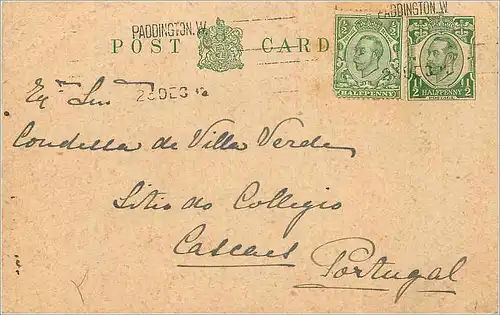 PADDINGTON.W.
PADDINGTON.W
POST CARD
HALFPENNY
HALFPENNY
POSTAGE
DEC
Condessa de Villa Verde
Sitio do Collegio
Cascaes
Portugal